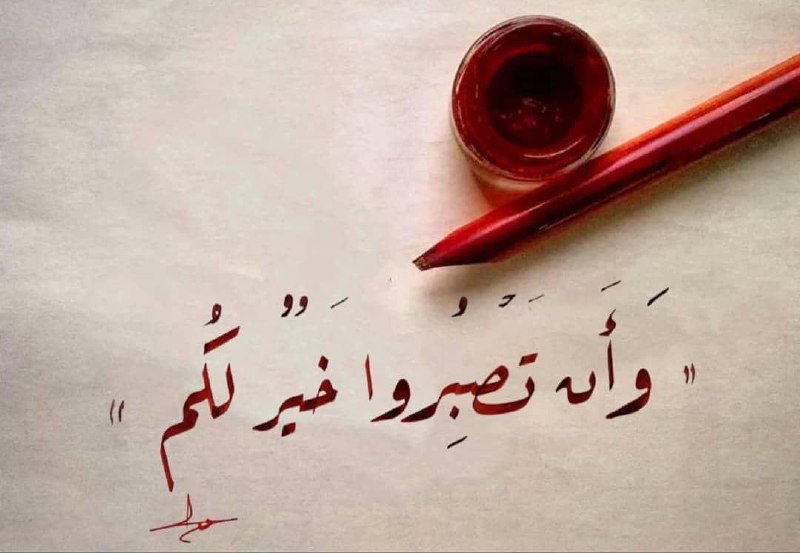 « وَأَن تَصْبِرُوا خَيْرٌ لَكُم »